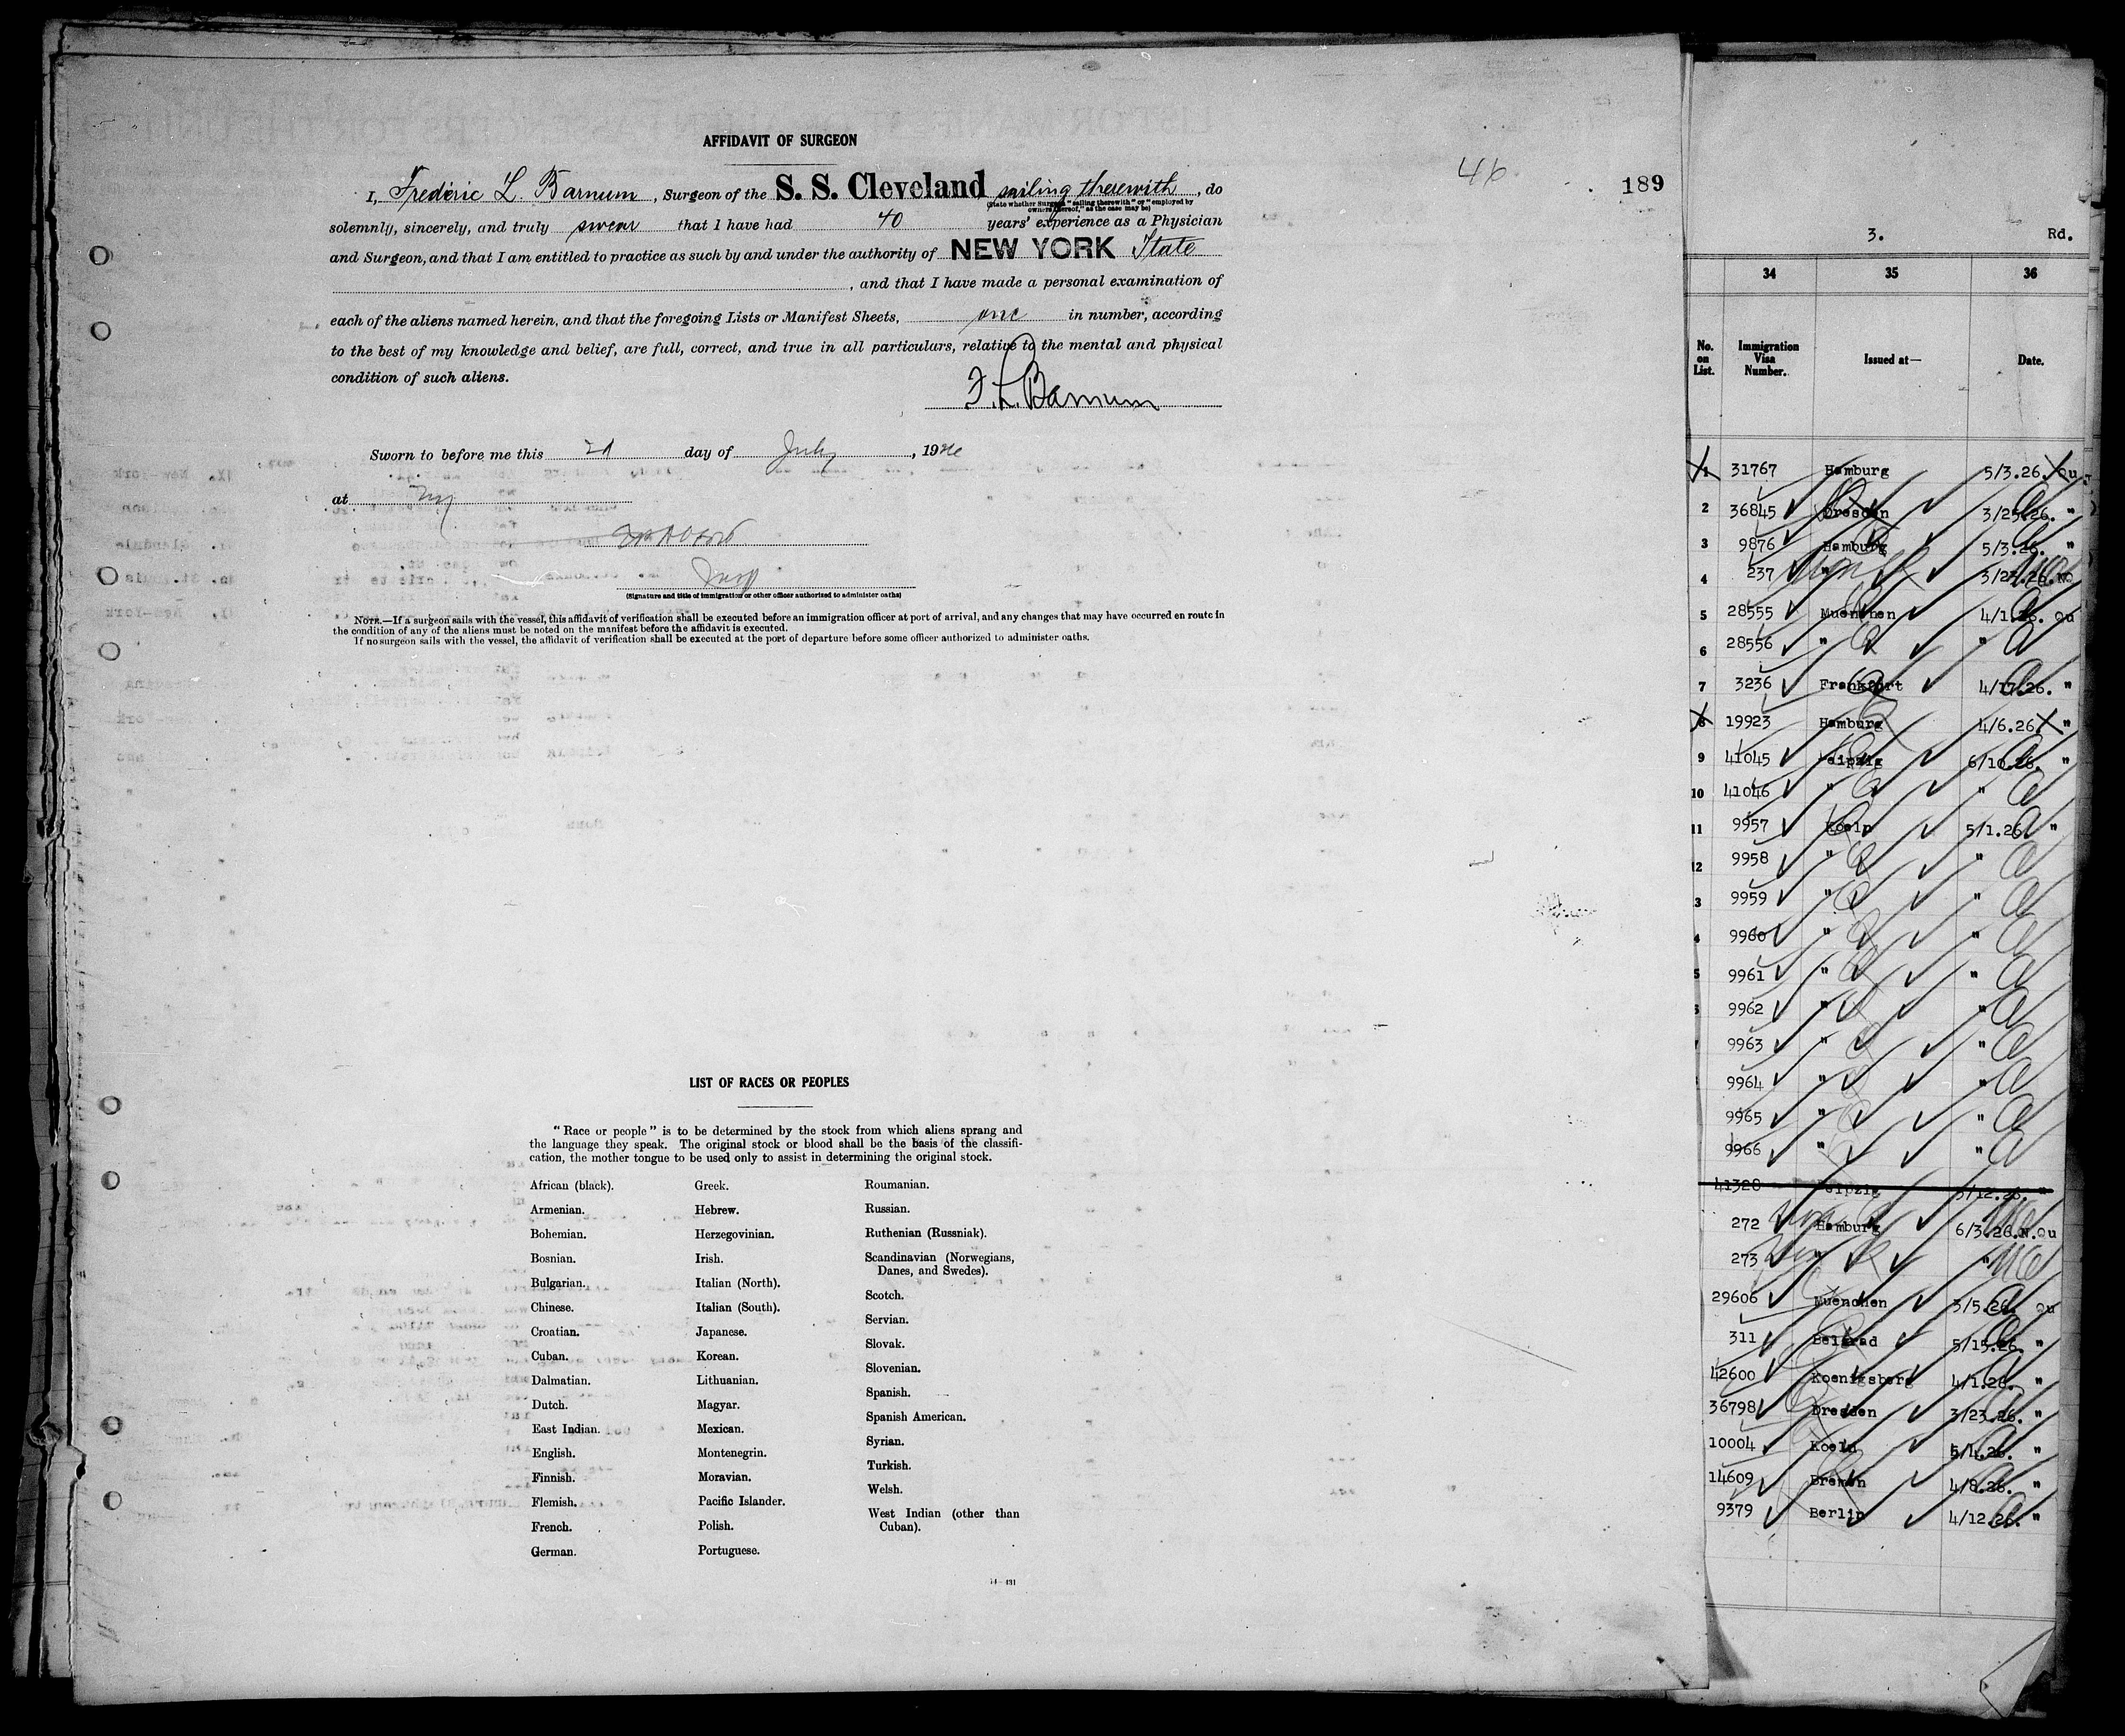 AFFIDAVIT OF SURGEON
46
189
I, Frederic L. Barnum, Surgeon of the S. S. Cleveland sailing therewith, do
(State whether Surgeon "sailing therewith" or "employed by
owners thereof," as the case may be)
solemnly, sincerely, and truly swear that I have had 40 years' experience as a Physician
and Surgeon, and that I am entitled to practice as such by and under the authority of NEW YORK State
, and that I have made a personal examination of
each of the aliens named herein, and that the foregoing Lists or Manifest Sheets, one in number, according
to the best of my knowledge and belief, are full, correct, and true in all particulars, relative to the mental and physical
condition of such aliens.
F. L. Barnum
Sworn to before me this 2d day of July, 1926
at NY
Insp
(Signature and title of immigration or other officer authorized to administer oaths)
NOTE.—If a surgeon sails with the vessel, this affidavit of verification shall be executed before an immigration officer at port of arrival, and any changes that may have occurred en route in
the condition of any of the aliens must be noted on the manifest before the affidavit is executed.
If no surgeon sails with the vessel, the affidavit of verification shall be executed at the port of departure before some officer authorized to administer oaths.
LIST OF RACES OR PEOPLES
"Race or people" is to be determined by the stock from which aliens sprang and
the language they speak. The original stock or blood shall be the basis of the classifi-
cation, the mother tongue to be used only to assist in determining the original stock.
African (black).
Armenian.
Bohemian.
Bosnian.
Bulgarian.
Chinese.
Croatian.
Cuban.
Dalmatian.
Dutch.
East Indian.
English.
Finnish.
Flemish.
French.
German.
Greek.
Hebrew.
Herzegovinian.
Irish.
Italian (North).
Italian (South).
Japanese.
Korean.
Lithuanian.
Magyar.
Mexican.
Montenegrin.
Moravian.
Pacific Islander.
Polish.
Portuguese.
Roumanian.
Russian.
Ruthenian (Russniak).
Scandinavian (Norwegians,
Danes, and Swedes).
Scotch.
Servian.
Slovak.
Slovenian.
Spanish.
Spanish American.
Syrian.
Turkish.
Welsh.
West Indian (other than
Cuban).
14—431
3. Rd.
34 35 36
No. on List. Immigration Visa Number. Issued at— Date.
1 31767 Hamburg 5/3.26. Qu
2 36845 Dresden 3/25.26. "
3 9876 Hamburg 5/3.26. "
4 237 " 3/23.26. NQ
5 28555 Muenchen 4/1.26. Qu
6 28556 " "
7 3236 Frankfurt 4/17.26. "
8 19923 Hamburg 4/6.26 "
9 41045 Leipzig 6/10.26. "
10 41046 " "
11 9957 Koeln 5/1.26. "
12 9958 " "
3 9959 " "
4 9960 " "
5 9961 " "
9962 " "
9963 " "
9964 " "
9965 " "
9966 " "
41328 Leipzig 5/12.26. "
272 Hamburg 6/3.26.N.Qu
273 " "
29606 Muenchen 3/5.26. Qu
311 Belgrad 5/15.26. "
42600 Koenigsberg 4/1.26. "
36798 Dresden 3/23.26. "
10004 Koeln 5/4.26. "
14609 Bremen 4/8.26. "
9379 Berlin 4/12.26. "